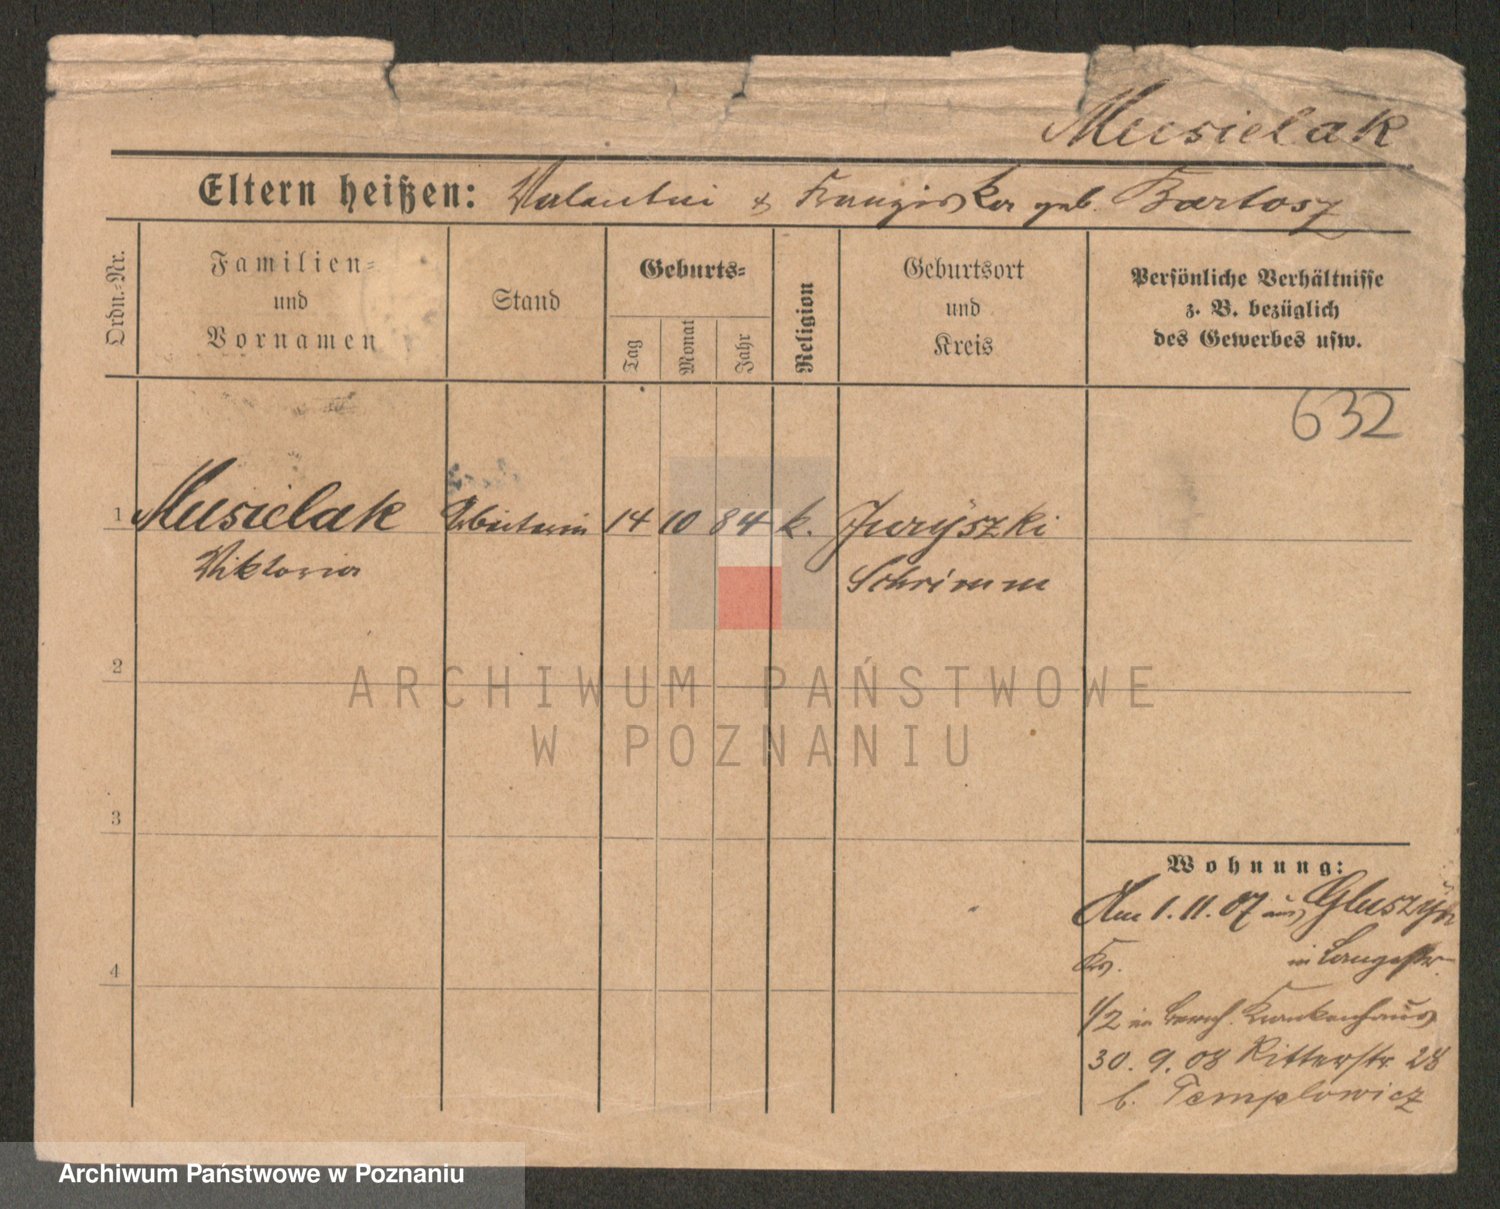 Musielak
Eltern heißen: Valentin & Franziska geb. Bartosz
Ordn.-Nr.
Familien-
und
Vornamen
Stand
Geburts-
Tag
Monat
Jahr
Religion
Geburtsort
und
Kreis
Persönliche Verhältnisse
z. B. bezüglich
des Gewerbes usw.
632
1 Musielak Arbeiterin 14 10 84 k. Juryszki
Viktoria Schrimm
2
3
4
Wohnung:
Am 1. 11. 07 aus Gluszyn
Krs. in Langestr.
1/2 im Krankenhaus
30. 9. 08 Ritterstr. 28
b. Templowicz
ARCHIWUM PAŃSTWOWE
W POZNANIU
Archiwum Państwowe w Poznaniu